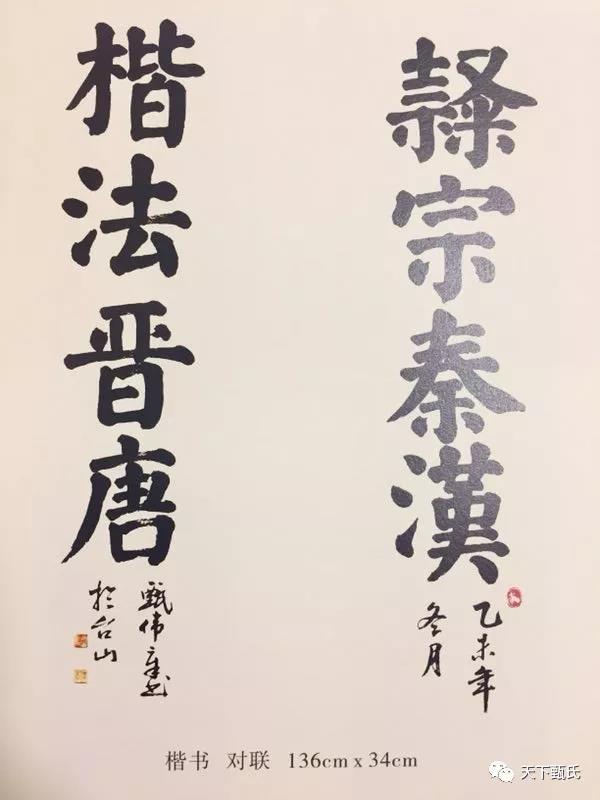 隸宗秦漢
乙未年
冬月
楷法晋唐
甄伟章书
於台山
楷书 对联 136cm x 34cm
天下甄氏